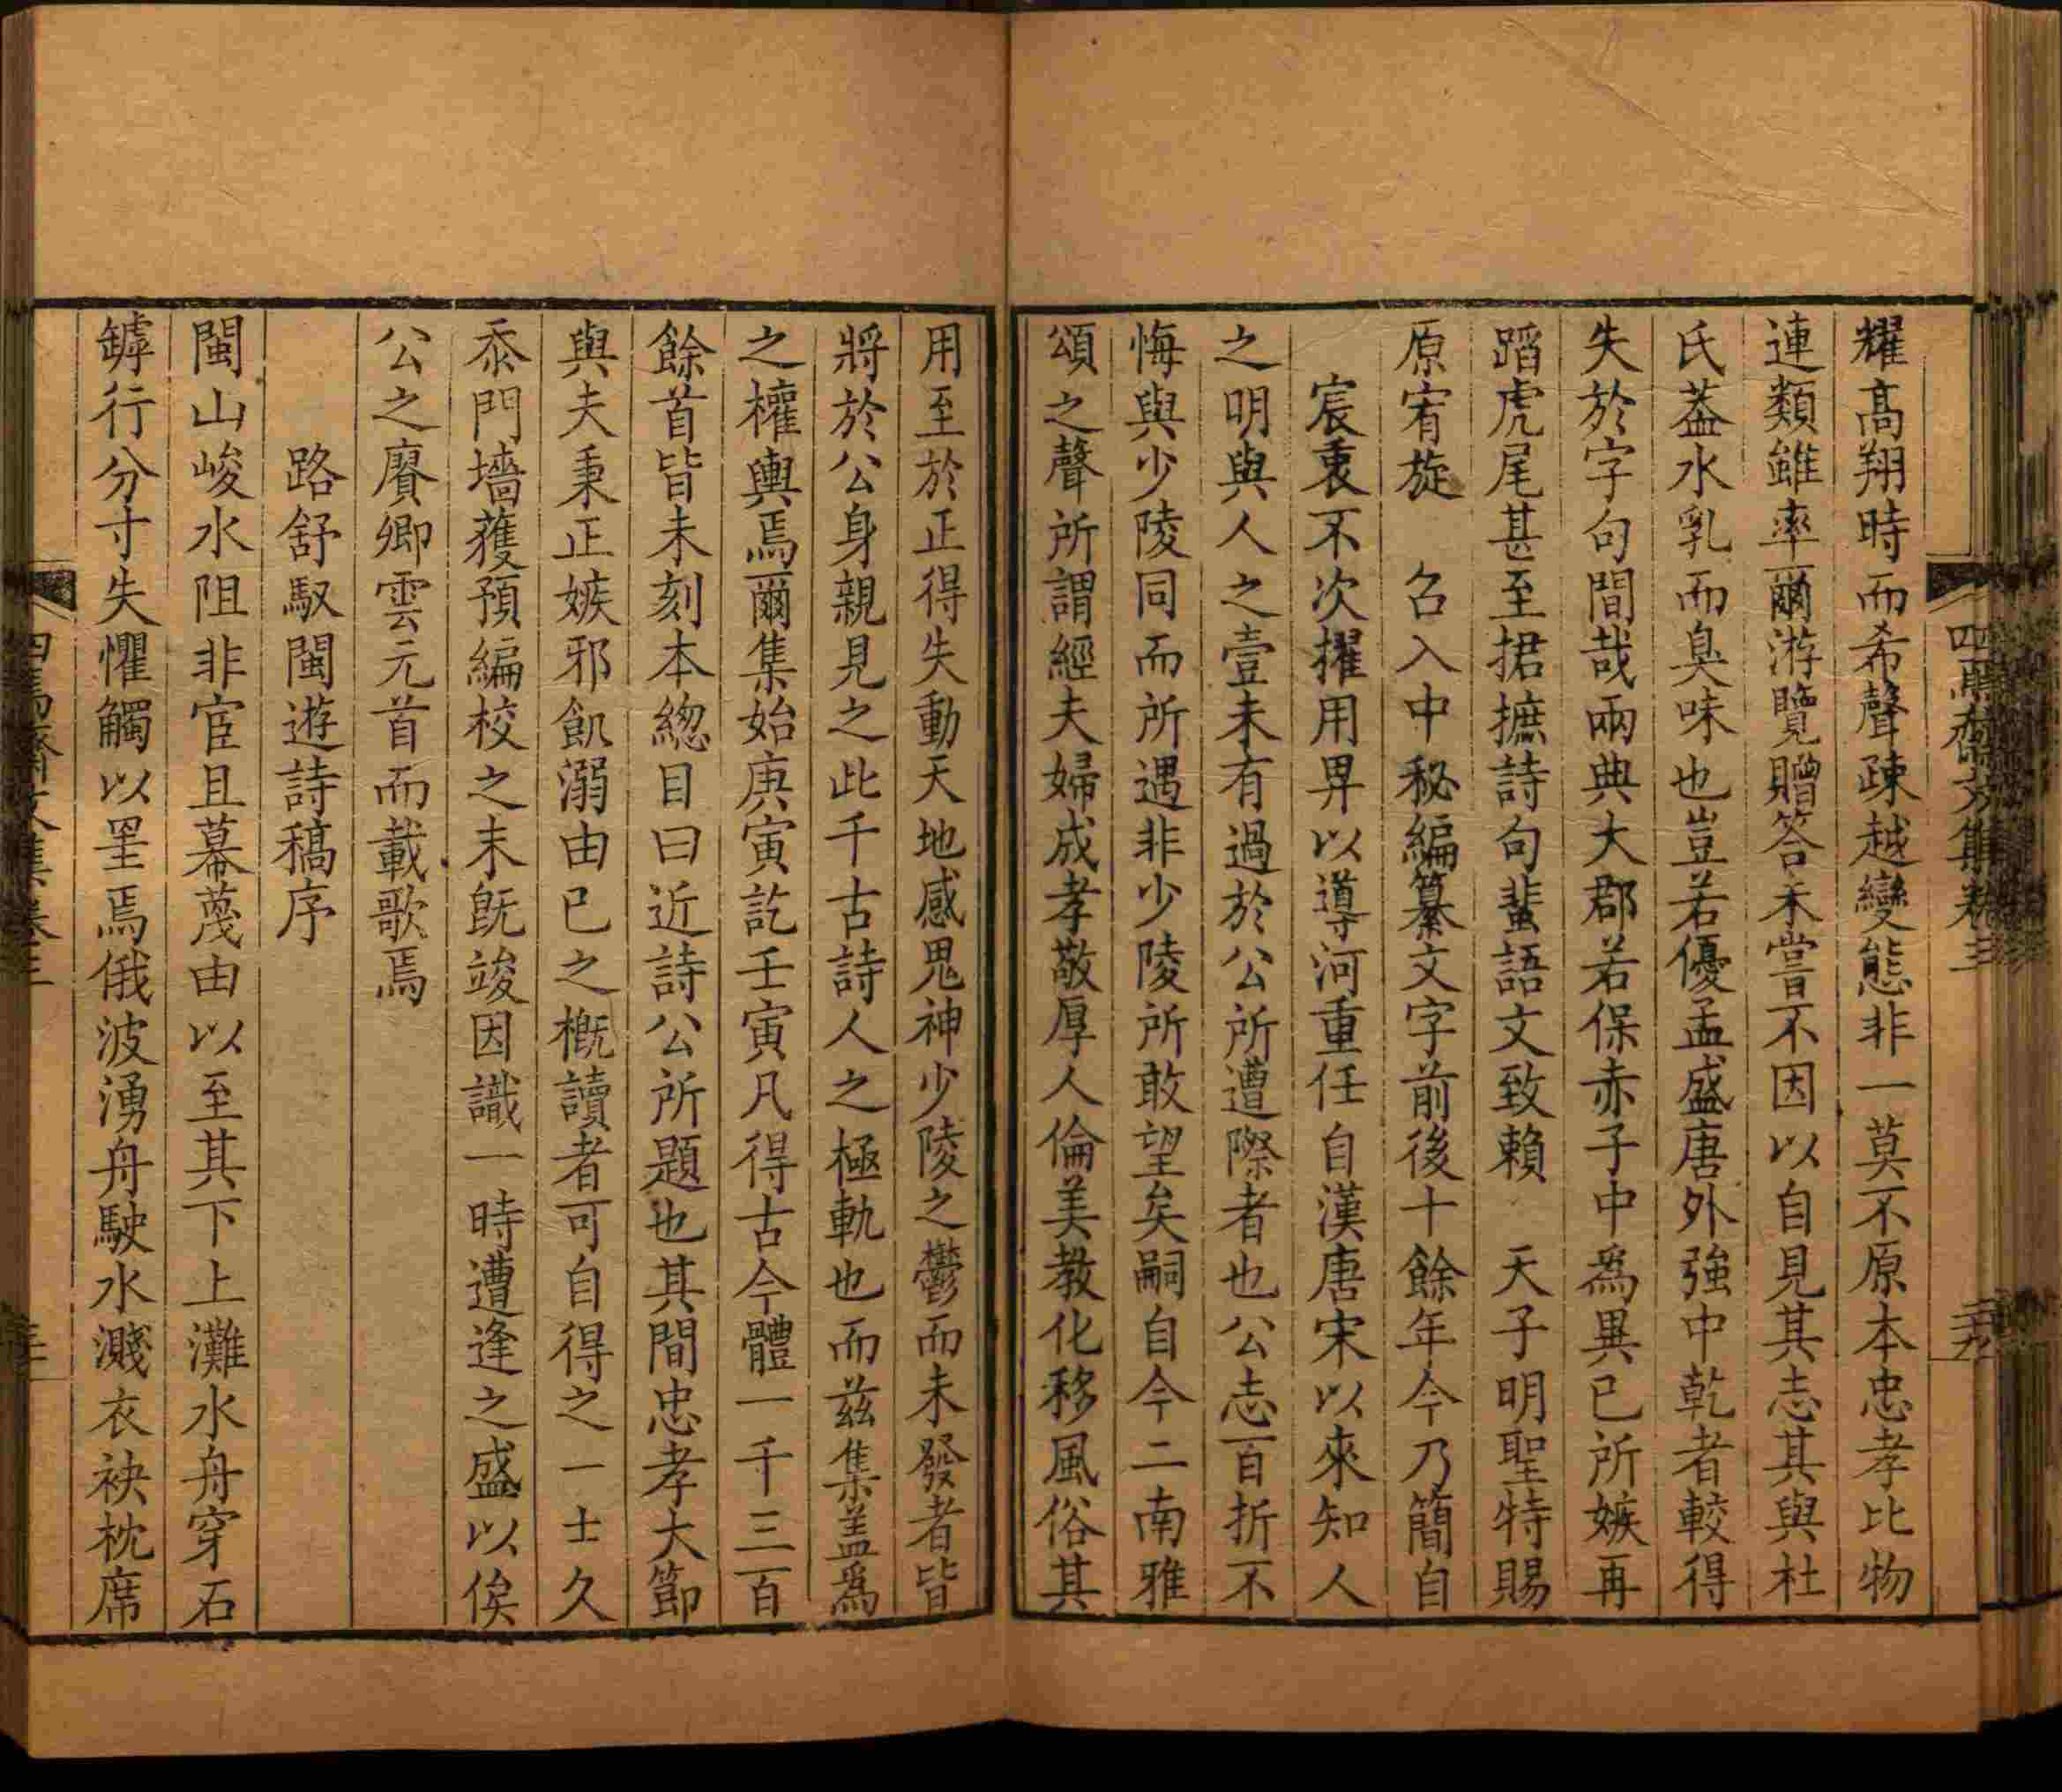 耀高翔時而希聲疎越變態非一莫不原本忠孝比物
連類雖率爾游覽贈答未嘗不因以自見其志其與杜
氏葢水乳而臭味也豈若優孟盛唐外強中乾者較得
失於字句間哉兩典大郡若保赤子中爲異己所嫉再
蹈虎尾甚至捃摭詩句蜚語文致賴　天子明聖特賜
原宥旋　召入中秘編纂文字前後十餘年今乃簡自
宸衷不次擢用畀以導河重任自漢唐宋以來知人
之明與人之壹未有過於公所遭際者也公志百折不
悔與少陵同而所遇非少陵所敢望矣嗣自今二南雅
頌之聲所謂經夫婦成孝敬厚人倫美教化移風俗其
用至於正得失動天地感鬼神少陵之鬱而未發者皆
將於公身親見之此千古詩人之極軌也而茲集盖爲
之權輿焉爾集始庚寅訖壬寅凡得古今體一千三百
餘首皆未刻本總目曰近詩公所題也其間忠孝大節
與夫秉正嫉邪飢溺由己之概讀者可自得之一士久
忝門墻獲預編校之末旣竣因識一時遭逢之盛以俟
公之賡卿雲元首而載歌焉
路舒馭閩遊詩稿序
閩山峻水阻非宦且幕蔑由以至其下上灘水舟穿石
罅行分寸失懼觸以罣焉俄波湧舟駛水濺衣袂枕席
四焉齋文集卷三